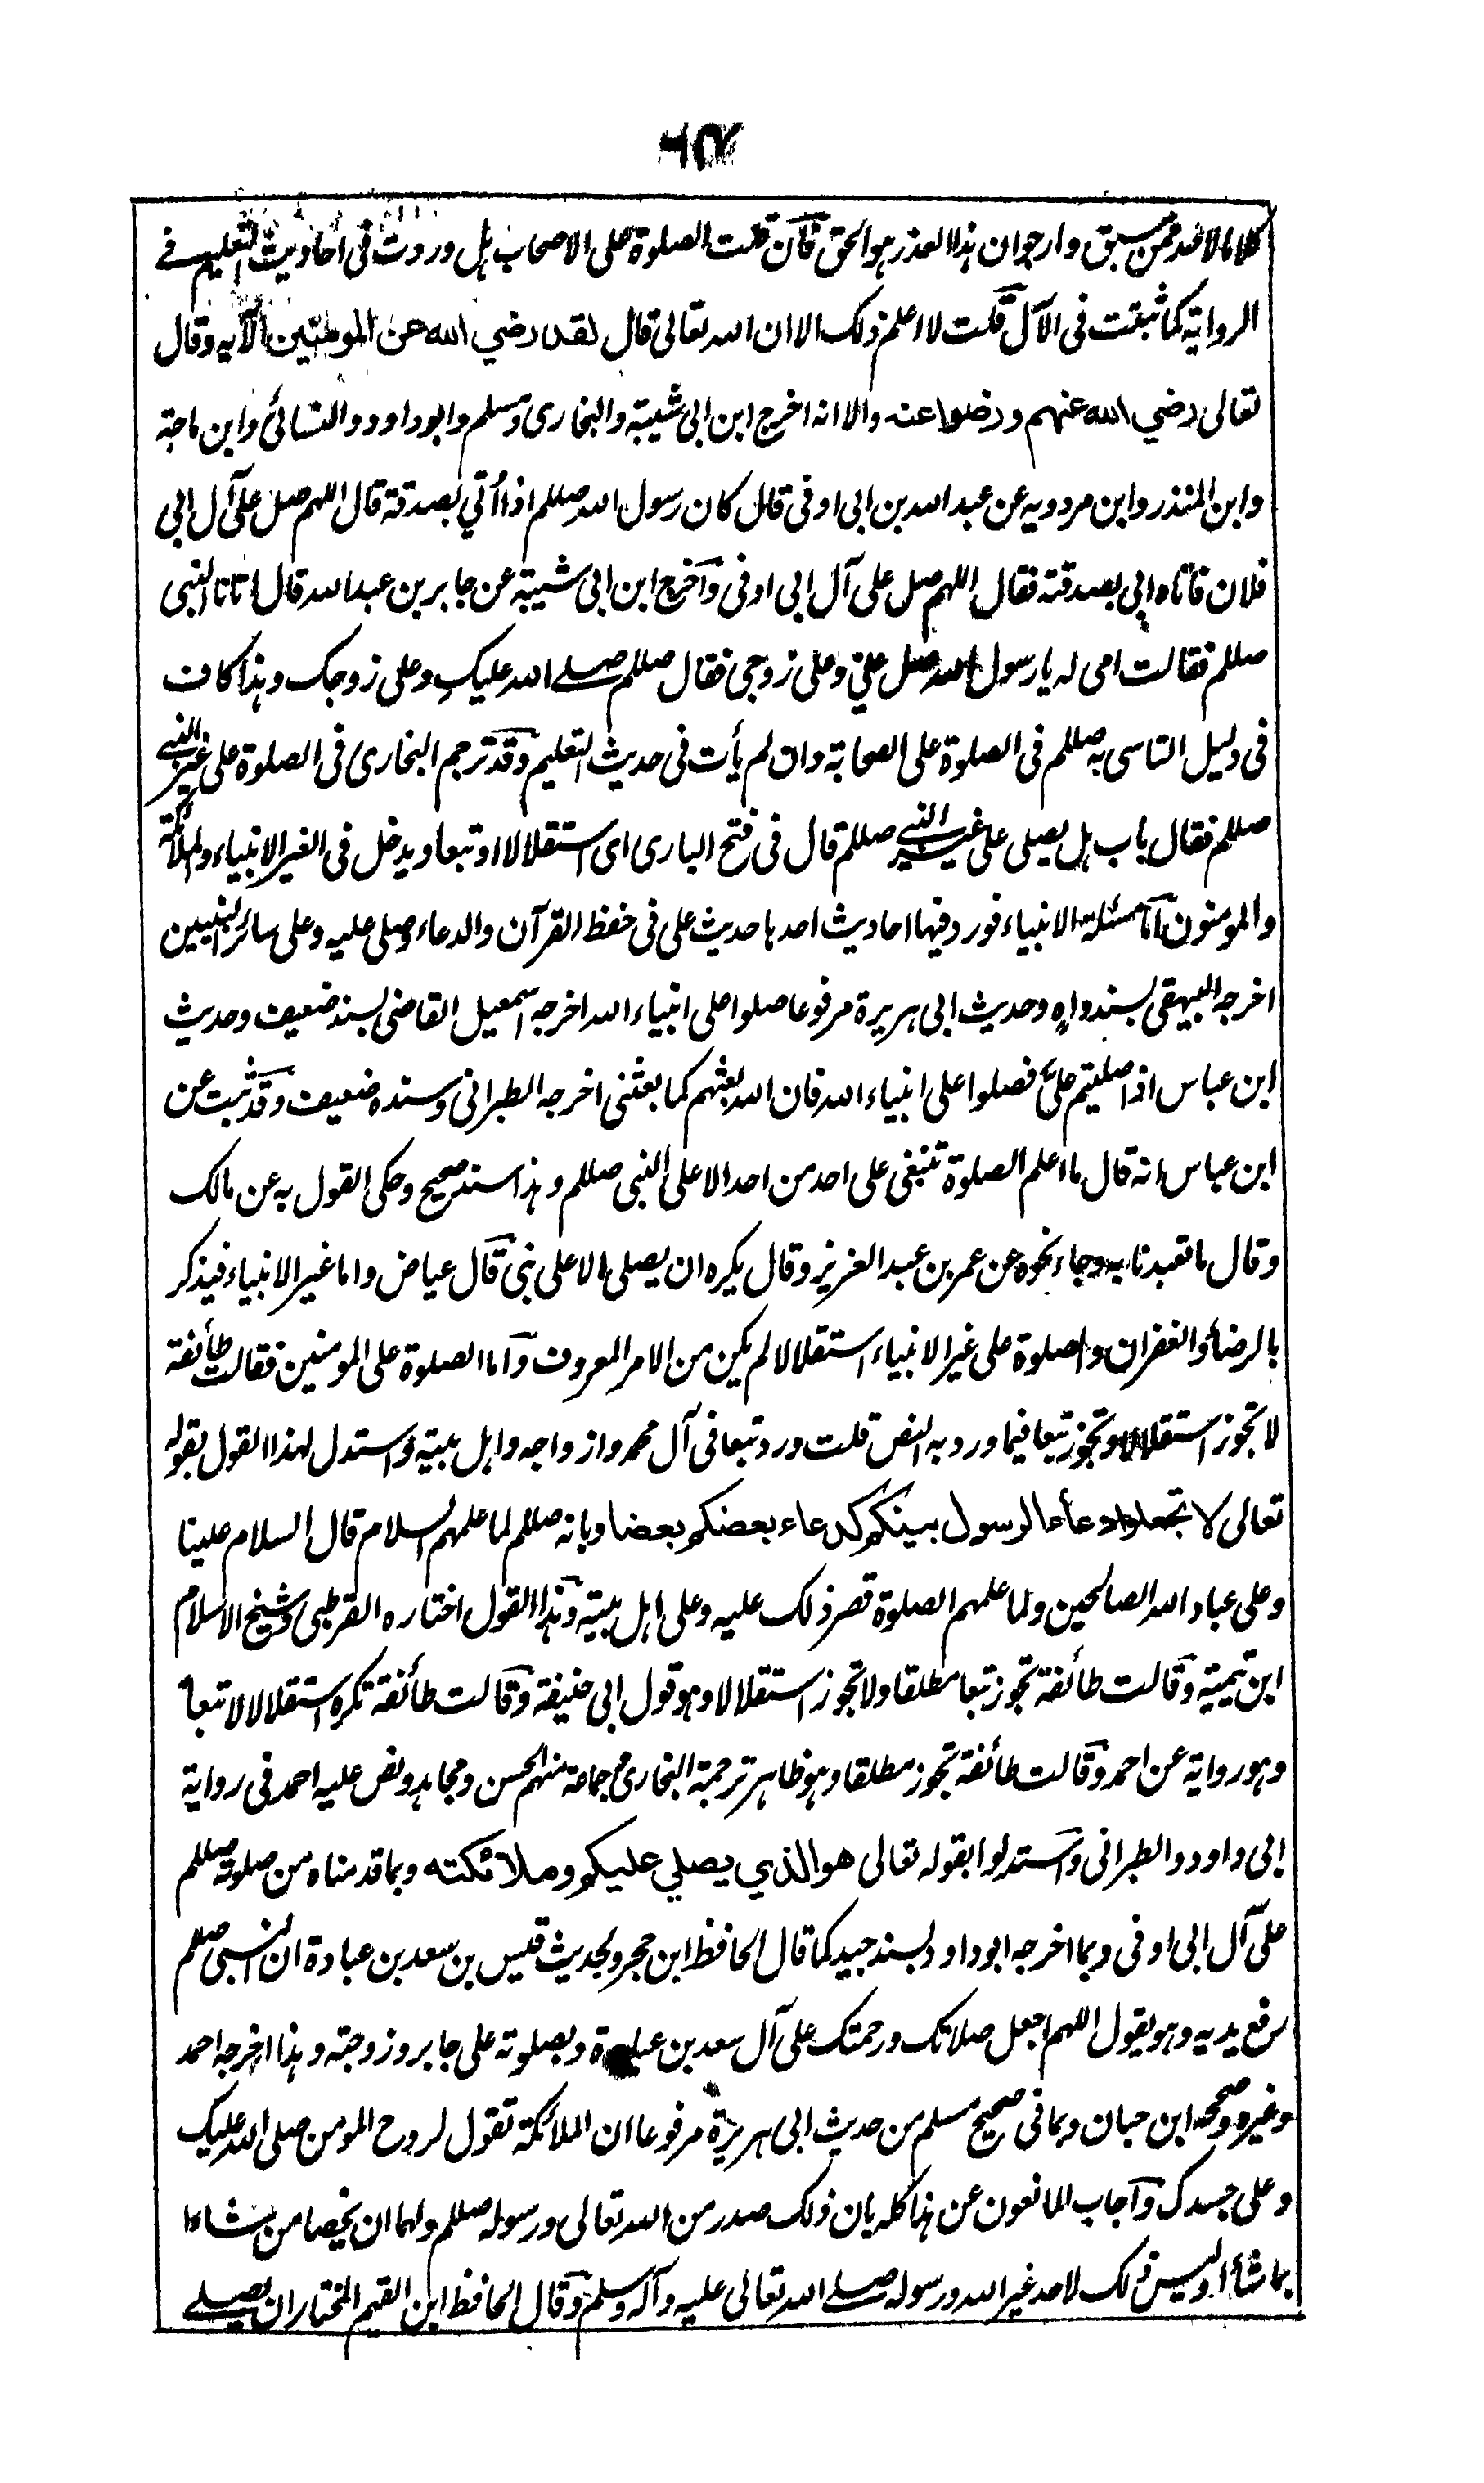 كلاما لاحد ممن سبق وارجو ان هذا العذر هو الحق فان قلت الصلوة على الاصحاب هل وردت فى احاديث التعليم فے
الرواية كما ثبتت فى الآل قلت لا اعلم ذلك الا ان الله تعالى قال لقد رضي الله عن المؤمنين الآيه وقال
تعالى رضي الله عنهم ورضوا عنه والا انه اخرج ابن ابى شيبة والبخارى ومسلم وابو داود والنسائى وابن ماجة
وابن المنذر وابن مردويه عن عبد الله بن ابى اوفى قال كان رسول الله صللم اذا أتي بصدقة قال اللهم صل على آل ابى
فلان فاتاه ابي بصدقته فقال اللهم صل على آل ابى اوفى وآخرج ابن ابى شيبة عن جابر بن عبد الله قال اتانا النبى
صللم فقالت امى له يا رسول الله صل عليّ وعلى زوجى فقال صللم صلے الله عليكِ وعلى زوجك وهذا كاف
فى دليل التاسى به صللم فى الصلوة على الصحابة وان لم يأت فى حديث التعليم وقد ترجم البخارى فى الصلوة على غير النبے
صللم فقال باب هل يصلى على غير النبے صللم قال فى فتح البارى اى استقلالا او تبعا ويدخل فى الغير الانبياء والملائكة
والمومنون آما مسئلة الانبياء فورد فيها احاديث احدها حديث على فى حفظ القرآن والدعاء وصلى عليه وعلى سائر النبيين
اخرجه البيهقى بسند واهٍ وحديث ابى هريرة مرفوعا صلوا على انبياء الله اخرجه اسمعيل القاضى بسند ضعيف وحديث
ابن عباس اذا صليتم علىّ فصلوا على انبياء الله فان الله بعثهم كما بعثنى اخرجه الطبرانى وسنده ضعيف وقد ثبت عن
ابن عباس انه قال ما اعلم الصلوة تنبغى على احد من احد الا على النبى صللم وهذا سند صحيح وحكى القول به عن مالك
وقال ما تعبدنا به وجاء نحوه عن عمر بن عبد العزيز وقال يكره ان يصلى الا على نبى قال عياض واما غير الانبياء فيذكر
بالرضا والغفران والصلوة على غير الانبياء استقلالا لم يكن من الامر المعروف وآما الصلوة على المومنين فقالت طائفة
لا تجوز استقلالا وتجوز تبعا فيما ورد به النص قلت ورد تبعا فى آل محمد وازواجه واهل بيته واستدل لهذا القول بقوله
تعالى لا تجعلوا دعاء الرسول بينكم كدعاء بعضكم بعضا وبانه صللم لما علمهم السلام قال السلام علينا
وعلى عباد الله الصالحين ولما علمهم الصلوة قصر ذلك عليه وعلى اهل بيته وهذا القول اختاره القرطبى وشيخ الاسلام
ابن تيمية وقالت طائفة تجوز تبعا مطلقا ولا تجوز استقلالا وهو قول ابى حنيفة وقالت طائفة تكره استقلالا لا تبعاً
وهو رواية عن احمد وقالت طائفة تجوز مطلقا وهو ظاهر ترجمة البخارى وجماعة منهم الحسن ومجاهد ونص عليه احمد فى رواية
ابى داود والطبرانى واستدلوا بقوله تعالى هو الذي يصلي عليكم وملائكته وبما قدمناه من صلوته صللم
على آل ابى اوفى وبما اخرجه ابو داود بسند جيد كما قال الحافظ ابن حجر وبحديث قيس بن سعد بن عبادة ان النبى صللم
رفع يديه وهو يقول اللهم اجعل صلاتك ورحمتك على آل سعد بن عبادة وبصلوته على جابر وزوجته وهذا اخرجه احمد
وغيره وصححه ابن حبان وبما فى صحيح مسلم من حديث ابى هريرة مرفوعا ان الملائكة تقول لروح المومن صلى الله عليك
وعلى جسدك وآجاب المانعون عن هذا كله بان ذلك صدر من الله تعالى ورسوله صللم ولهما ان يخصا من شاءا
بما شاءا وليس ذلك لاحد غير الله ورسوله صلے الله تعالى عليه وآله وسلم وقال الحافظ ابن القيم المختار ان يصلے